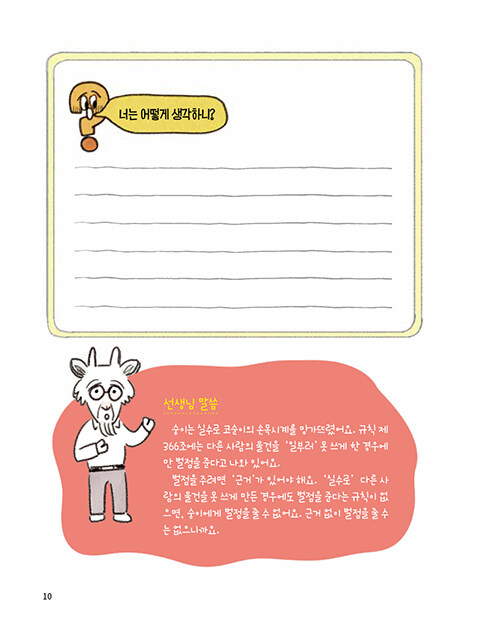 너는 어떻게 생각하니?
선생님 말씀
숭이는 실수로 코순이의 손목시계를 망가뜨렸어요. 규칙 제
366조에는 다른 사람의 물건을 ‘일부러’ 못 쓰게 한 경우에
만 벌점을 준다고 나와 있어요.
벌점을 주려면 ‘근거’가 있어야 해요. ‘실수로’ 다른 사
람의 물건을 못 쓰게 만든 경우에도 벌점을 준다는 규칙이 없
으면, 숭이에게 벌점을 줄 수 없어요. 근거 없이 벌점을 줄 수
는 없으니까요.
10